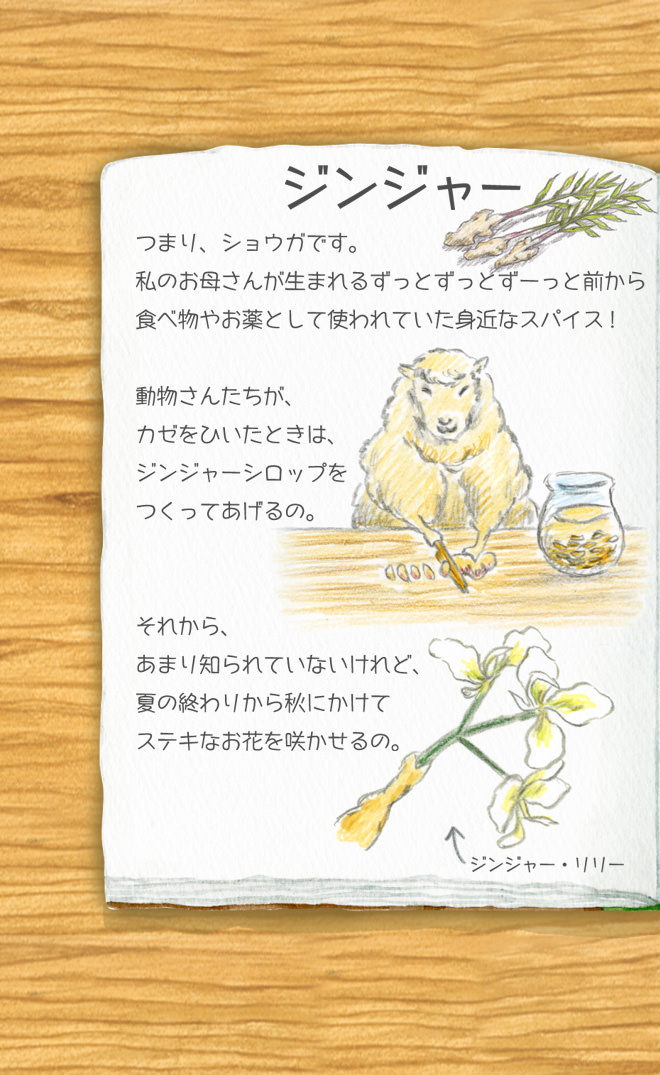 ジンジャー
つまり、ショウガです。
私のお母さんが生まれるずっとずっとずーっと前から
食べ物やお薬として使われていた身近なスパイス！
動物さんたちが、
カゼをひいたときは、
ジンジャーシロップを
つくってあげるの。
それから、
あまり知られていないけれど、
夏の終わりから秋にかけて
ステキなお花を咲かせるの。
ジンジャー・リリー